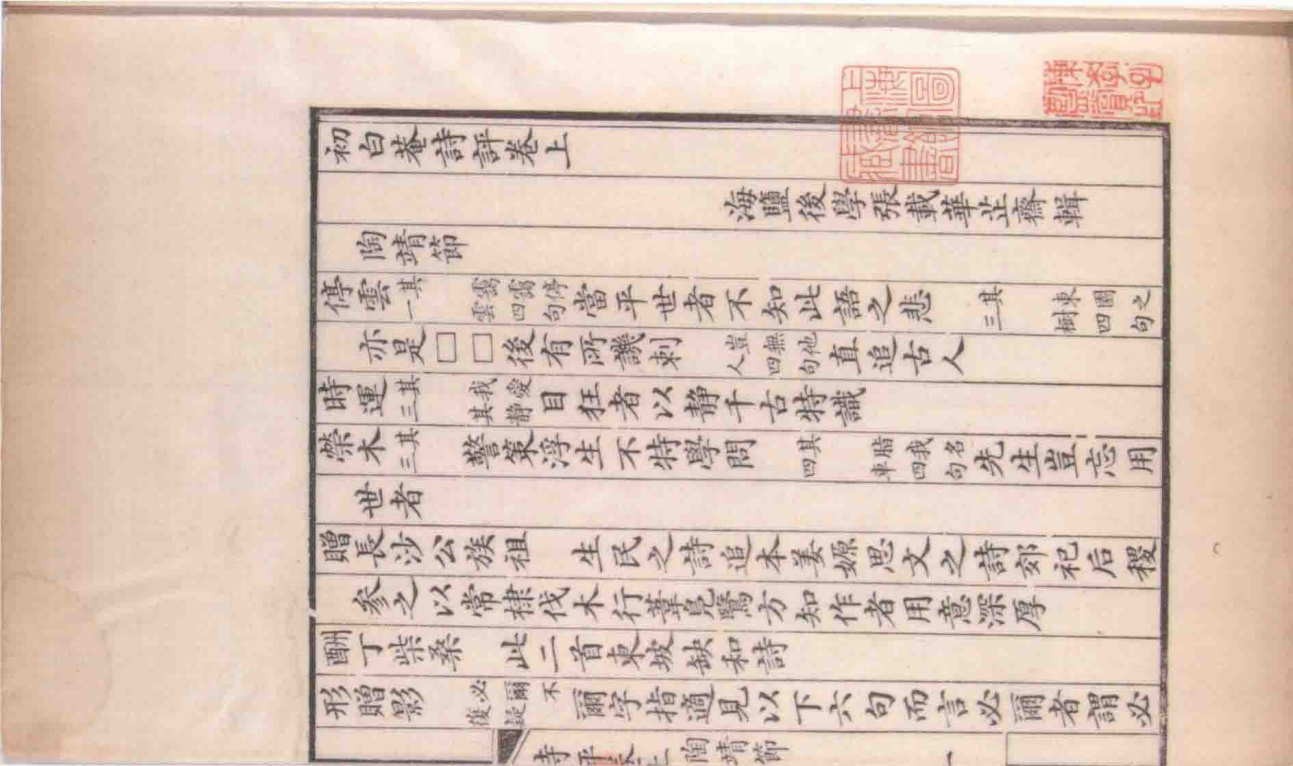 初白菴詩評卷上
海鹽後學張載華芷齋輯
陶靖節
停雲其一 靄靄停雲四句當平世者不知此語之悲 其三 東園之樹四句
亦是□□後有所譏刺 豈無他人四句直追古人
時運其三 我愛其靜目狂者以靜千古特識
榮木其三 警策浮生不特學問 其四 脂我名車四句先生豈忘用
世者
贈長沙公族祖 生民之詩追本姜嫄思文之詩郊祀后稷
參之以常棣伐木行葦鳧鷖方知作者用意深厚
酬丁柴桑 此二首東坡缺和詩
形贈影 必爾不復疑爾字指適見以下六句而言必爾者謂必
陶靖節 一